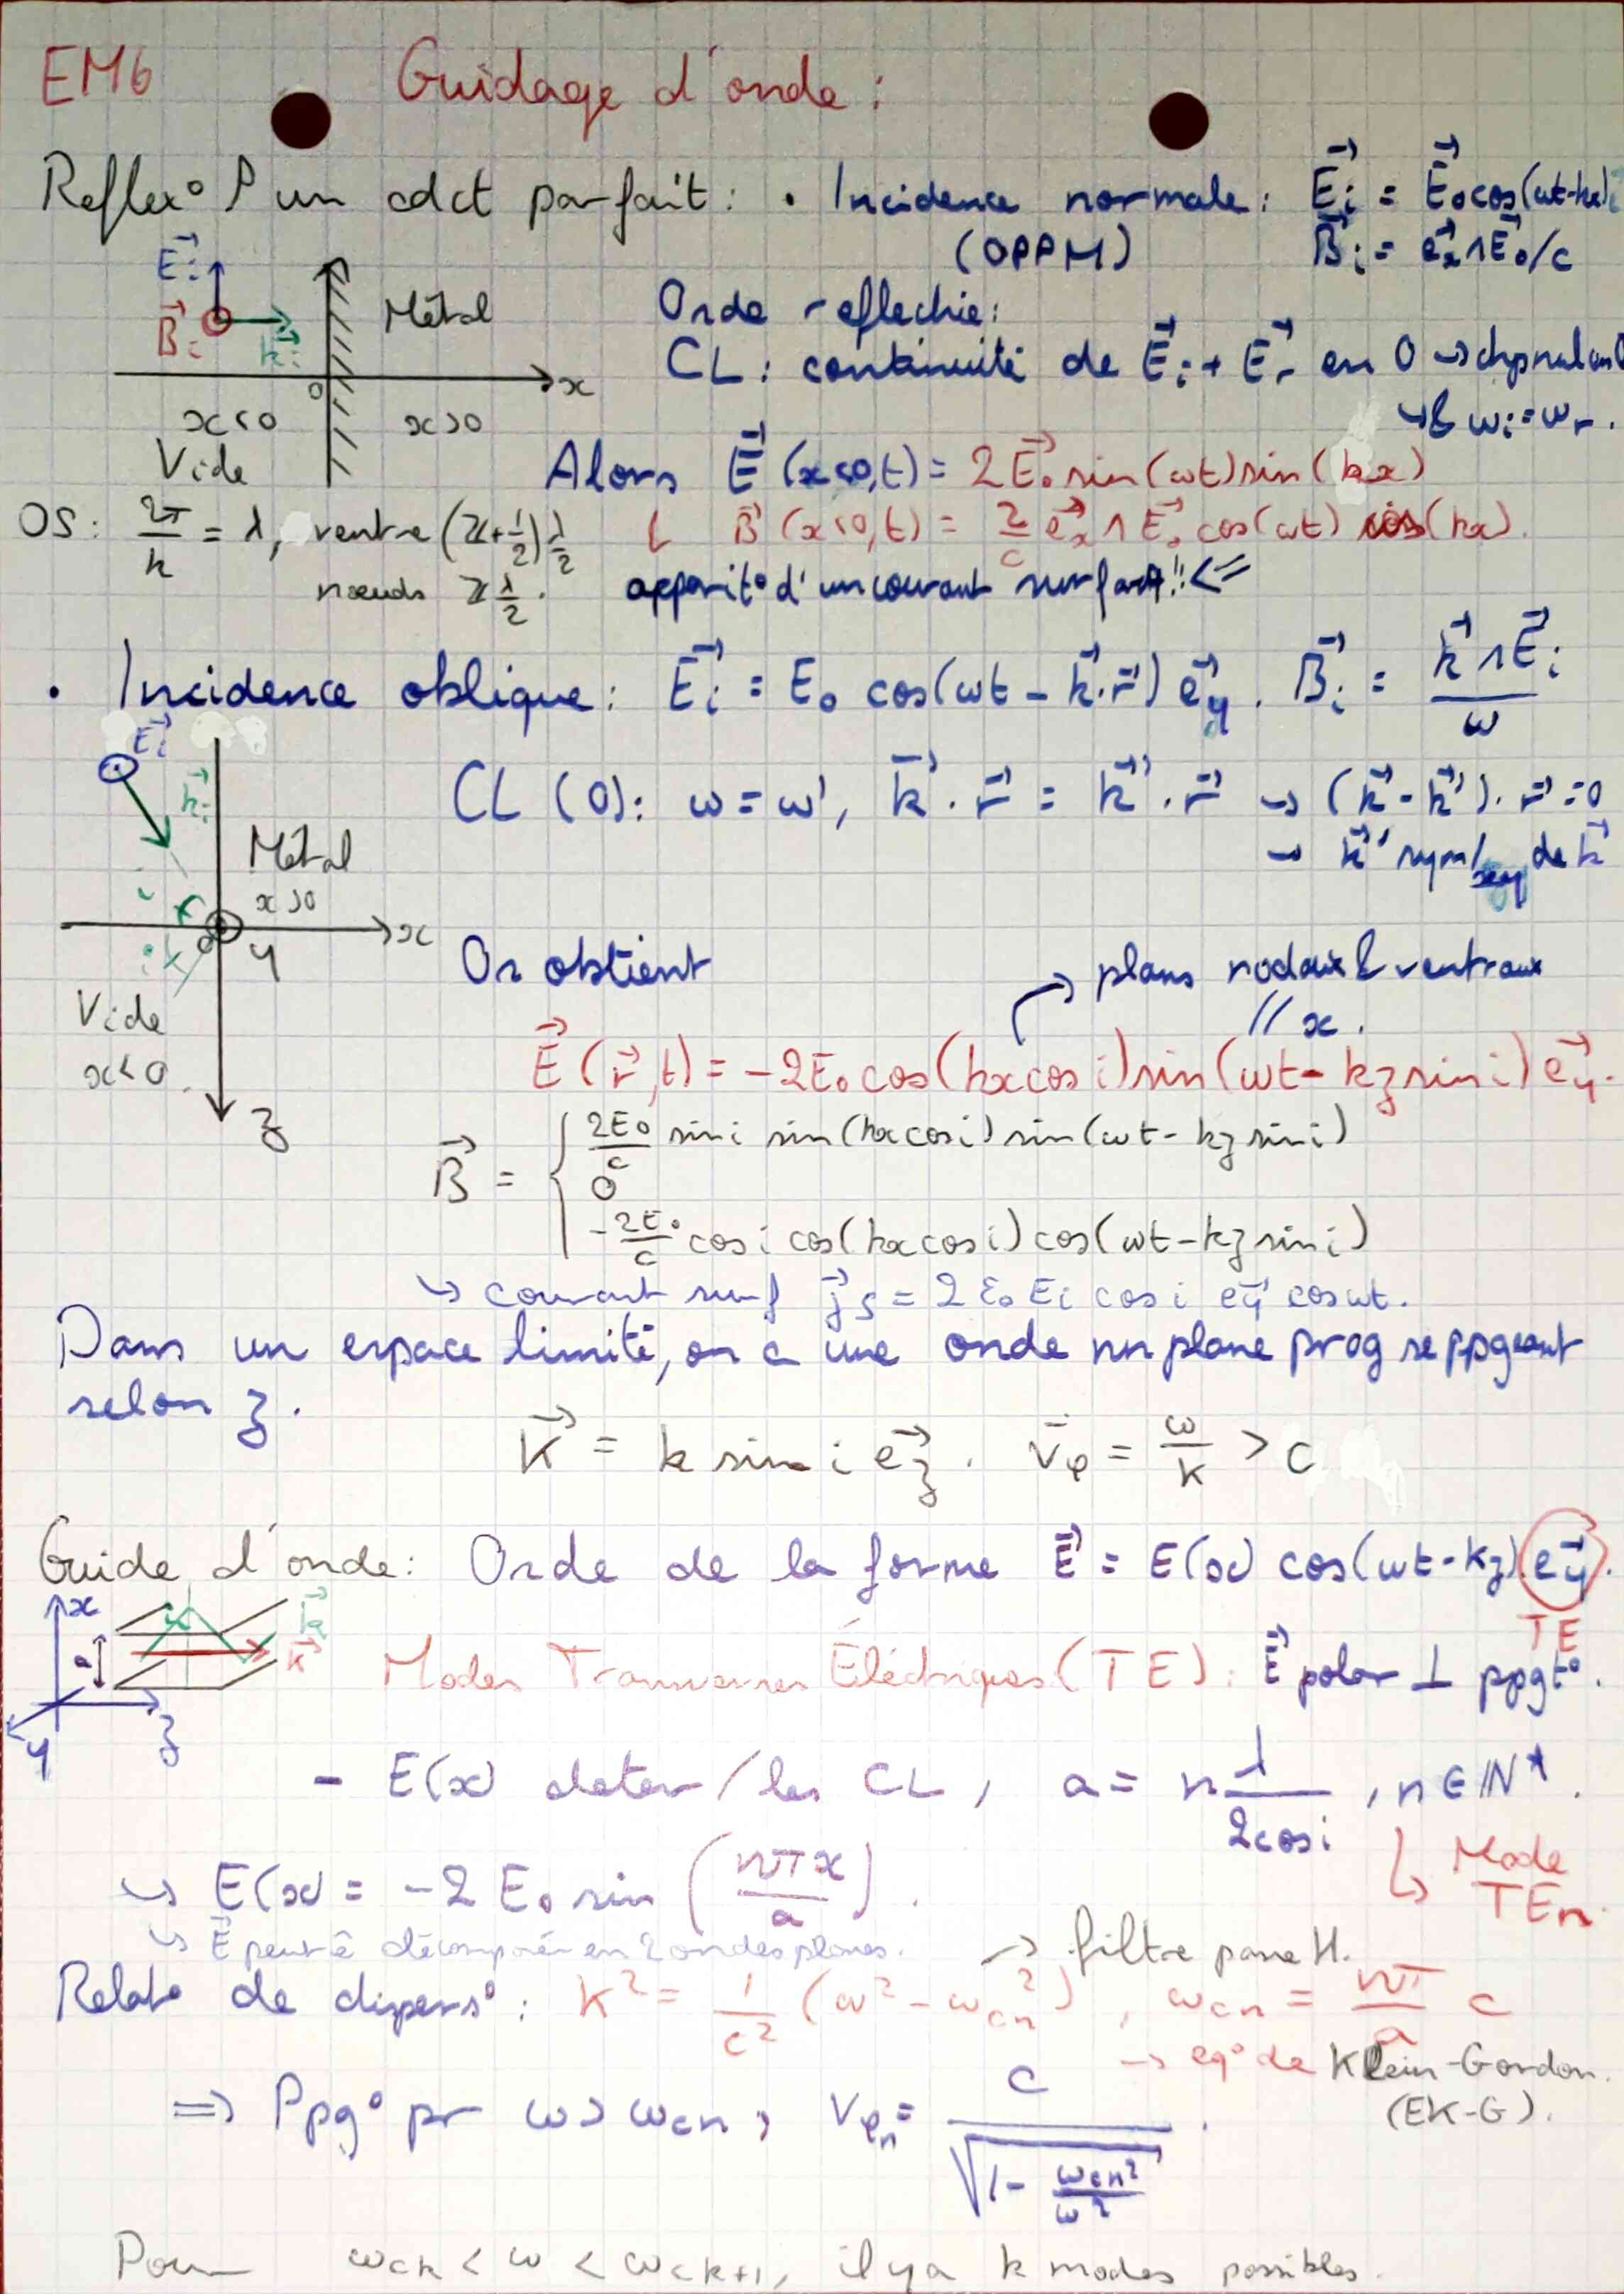 EM6 Guidage d'onde :
Reflex° / un cdct parfait : • Incidence normale : E⃗i = E⃗0 cos(ωt-kx)
(OPPM) B⃗i = e⃗x ∧ E⃗0/c
E⃗i
B⃗i k⃗i Métal
0 x
x<0 x>0
Vide
Onde reflechie :
CL : continuité de E⃗i + E⃗r en 0 → chp nul en 0
↳ & ωi = ωr.
Alors E⃗ (x<0,t) = 2E⃗0 sin(ωt) sin(kx)
OS : 2π/k = λ, ventre (Z+1/2) λ/2 & B⃗ (x<0,t) = 2/c e⃗x ∧ E⃗0 cos(ωt) cos(kx).
nœuds Z λ/2. apparit° d'un courant surfact !! <=
• Incidence oblique : E⃗i = E0 cos(ωt - k⃗.r⃗) e⃗y. B⃗i = k⃗ ∧ E⃗i / ω
E⃗i
k⃗i
Métal
x>0
x
0 y
Vide
x<0.
z
CL (0) : ω = ω', k⃗ . r⃗ = k⃗' . r⃗ → (k⃗ - k⃗') . r⃗ = 0
→ k⃗' sym/ de k⃗
On obtient → plans nodaux & ventraux
// x.
E⃗ (r⃗,t) = -2E0 cos(kx cos i) sin(ωt - kz sin i) e⃗y.
B⃗ = { 2E0/c sin i sin(kx cos i) sin(ωt - kz sin i)
0
-2E0/c cos i cos(kx cos i) cos(ωt - kz sin i)
↳ courant surf j⃗s = 2 ε0 Ei cos i e⃗y cos ωt.
Dans un espace limité, on a une onde nn plane prog se ppgeant
selon z.
K⃗ = k sin i e⃗z. vφ = ω/K > c
Guide d'onde : Onde de la forme E⃗ = E(x) cos(ωt - Kz) e⃗y.
TE
x
a
k⃗
K⃗
y z
Modes Transverses Électriques (TE) : E⃗ polar ⊥ ppgt°.
- E(x) deter / les CL, a = n λ/2cos i, n ∈ ℕ*.
↳ Mode TEn.
↳ E(x) = -2 E0 sin (nπx/a).
↳ E⃗ peut ê décomposée en 2 ondes planes. → filtre passe H.
Relat° de dispers° : K² = 1/c² (ω² - ωcn²), ωcn = nπ/a c
→ eq° de Klein-Gordon.
(EK-G).
=> Ppg° pr ω > ωcn, vφn = c / √(1 - ωcn²/ω²).
Pour ωck < ω < ωck+1, il y a k modes possibles.